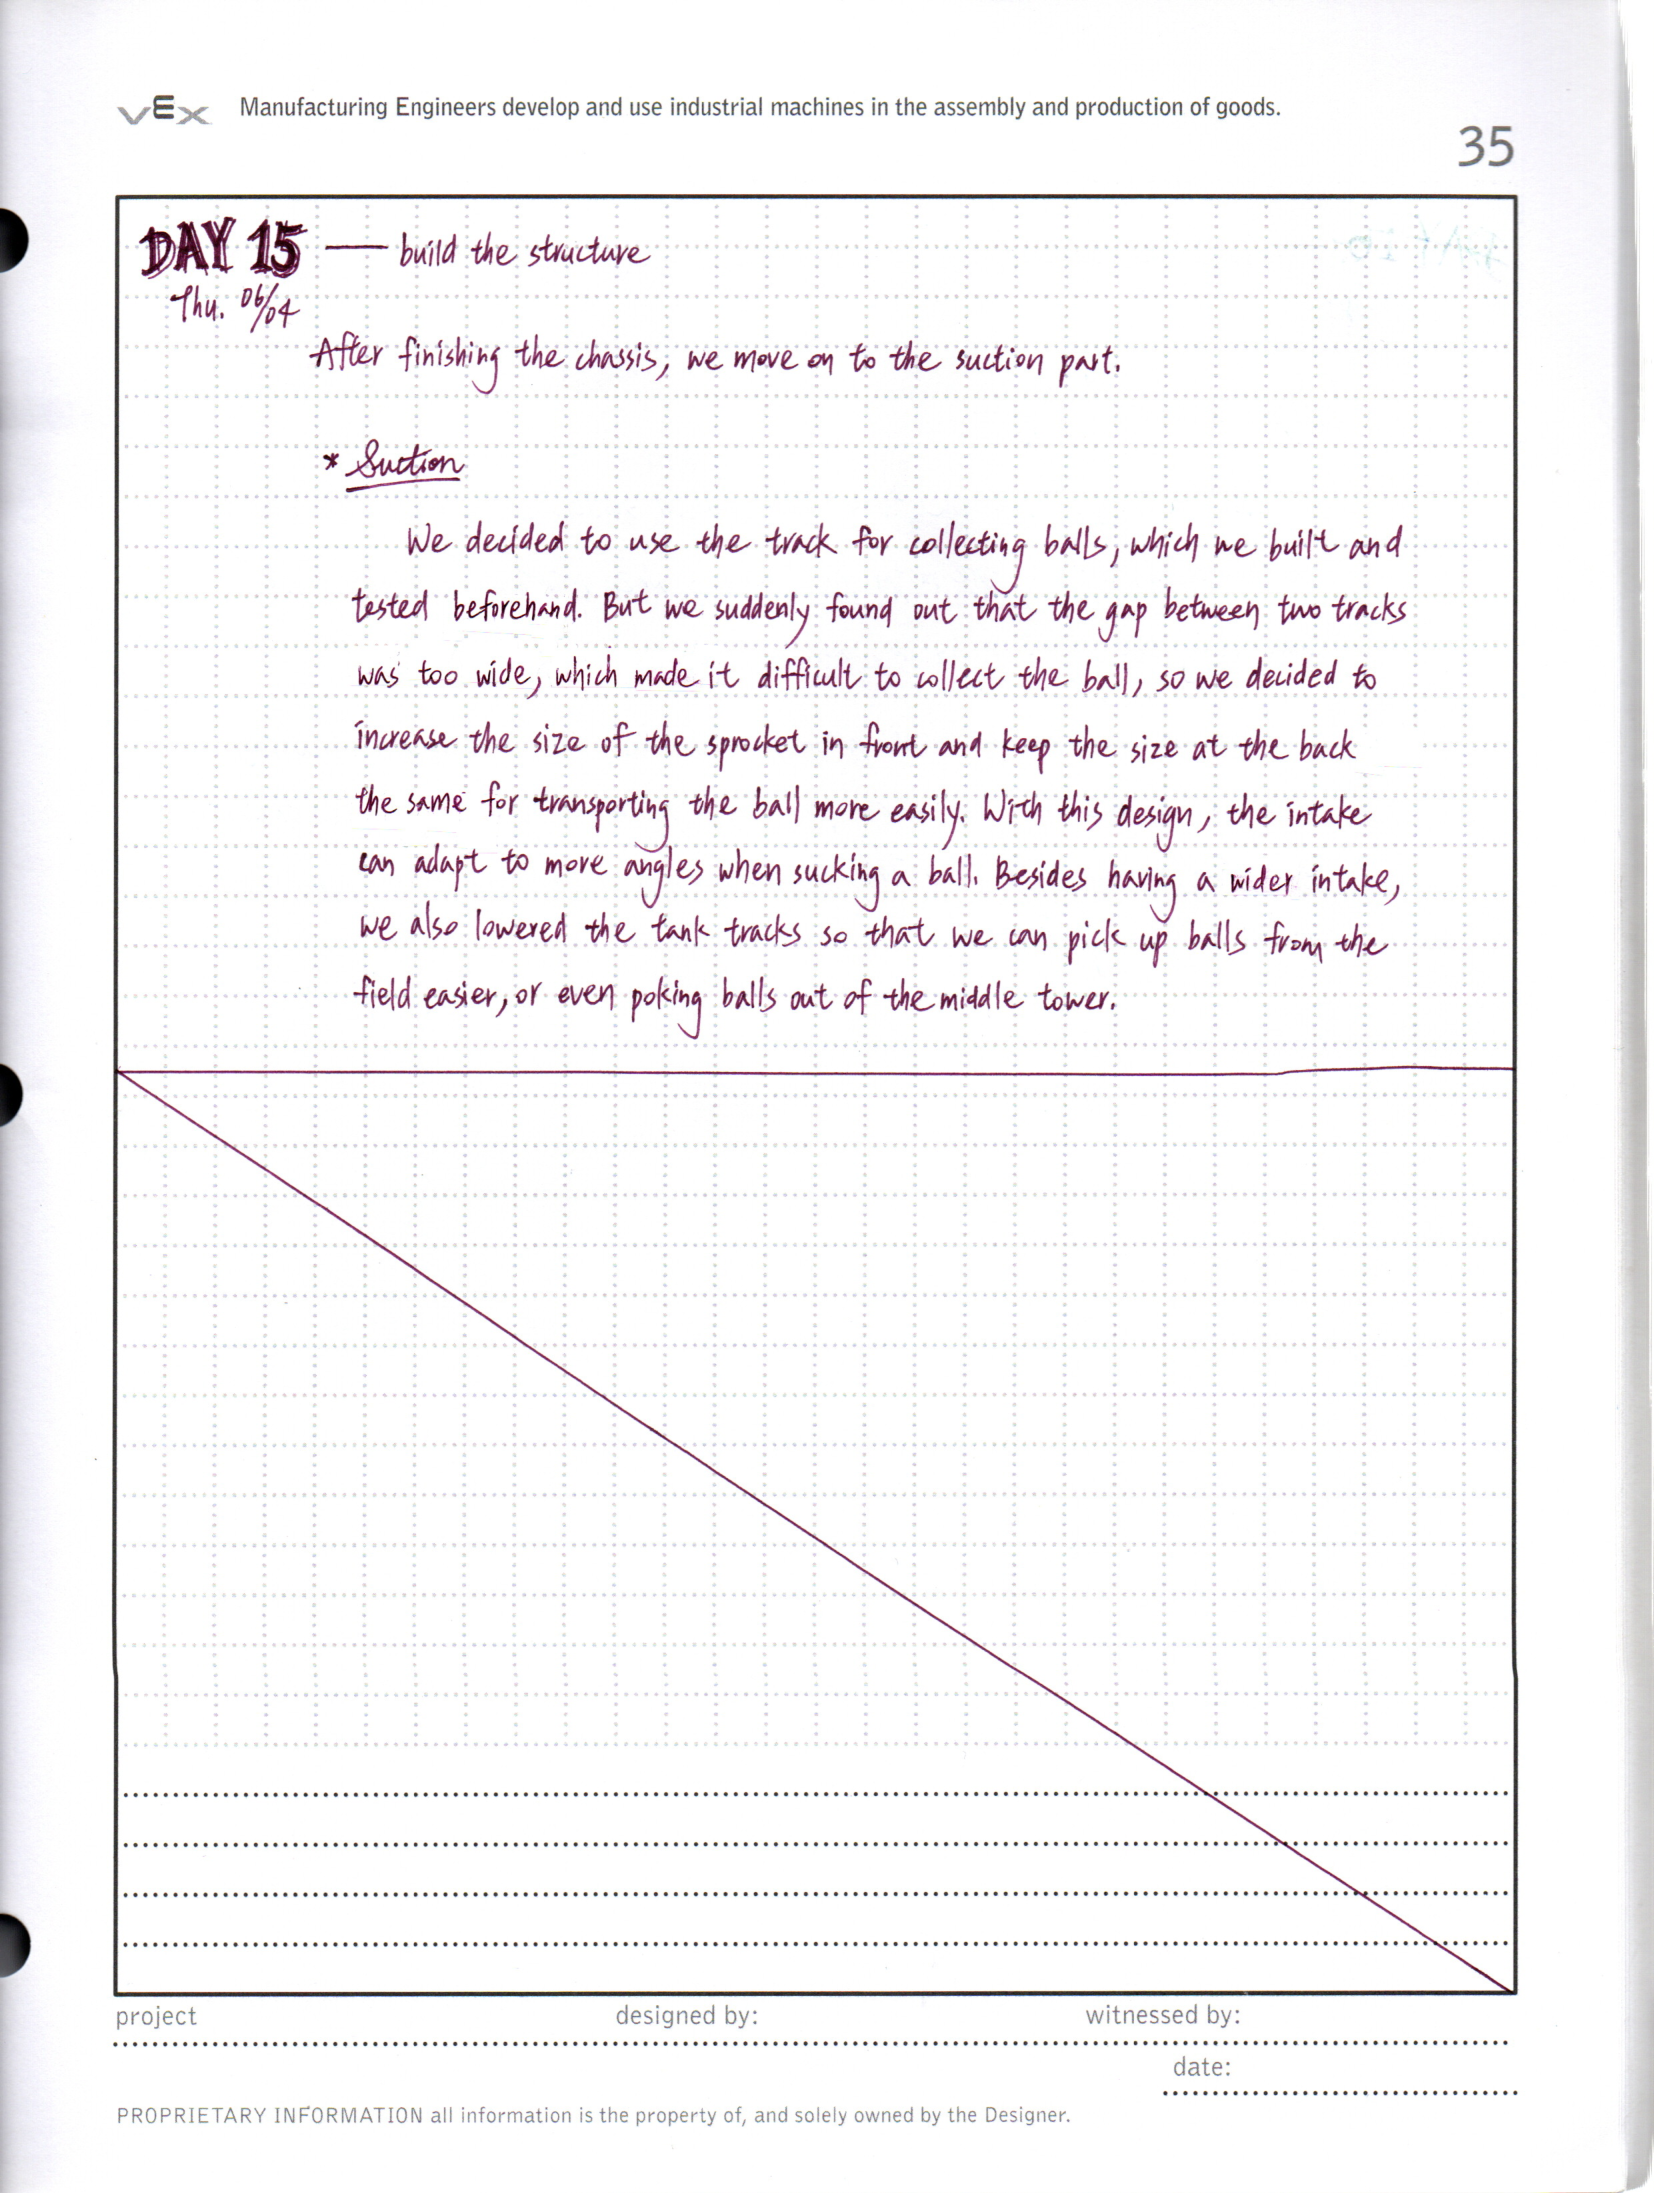 VEX Manufacturing Engineers develop and use industrial machines in the assembly and production of goods.
35
DAY 15 — build the structure
Thu. 06/04
After finishing the chassis, we move on to the suction part.
* Suction
We decided to use the track for collecting balls, which we built and
tested beforehand. But we suddenly found out that the gap between two tracks
was too wide, which made it difficult to collect the ball, so we decided to
increase the size of the sprocket in front and keep the size at the back
the same for transporting the ball more easily. With this design, the intake
can adapt to more angles when sucking a ball. Besides having a wider intake,
we also lowered the tank tracks so that we can pick up balls from the
field easier, or even poking balls out of the middle tower.
project designed by: witnessed by:
date:
PROPRIETARY INFORMATION all information is the property of, and solely owned by the Designer.